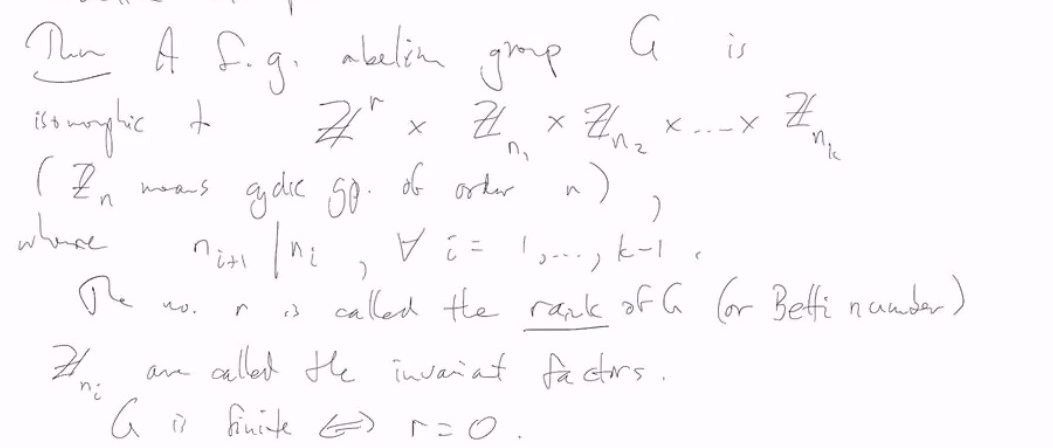 Thm A f.g. abelian group G is
isomorphic to ℤ^r × ℤ_{n_1} × ℤ_{n_2} × ... × ℤ_{n_k}
(ℤ_n means cyclic gp. of order n),
where n_{i+1} | n_i, ∀ i = 1, ..., k-1.
The no. r is called the rank of G (or Betti number)
ℤ_{n_i} are called the invariat factors.
G is finite ⟺ r = 0.